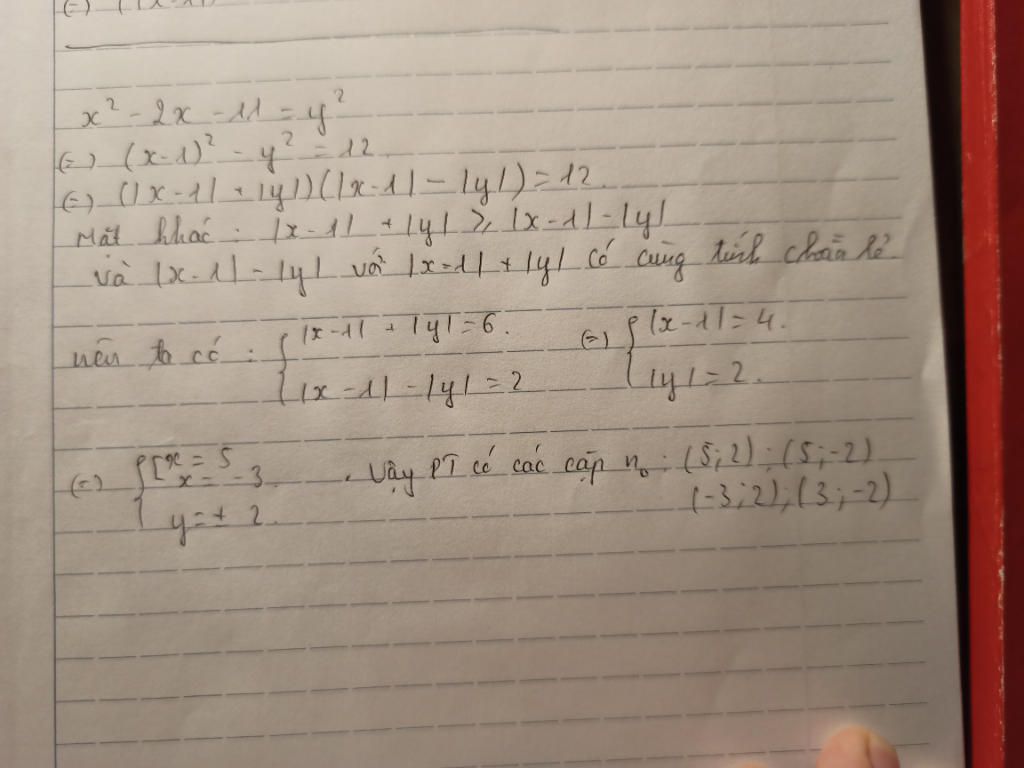 x² - 2x - 11 = y²
(=) (x-1)² - y² = 12
(=) (|x-1| + |y|)(|x-1| - |y|) = 12.
Mặt khác : |x-1| + |y| ≥ |x-1| - |y|
và |x-1| - |y| với |x-1| + |y| có cùng tính chẵn lẻ.
nên ta có : { |x-1| + |y| = 6. (=) { |x-1| = 4.
|x-1| - |y| = 2 |y| = 2.
(=) { [ x = 5 . Vậy PT có các cặp n₀ : (5; 2) ; (5; -2)
x = -3 (-3; 2) ; (3; -2)
y = ± 2.